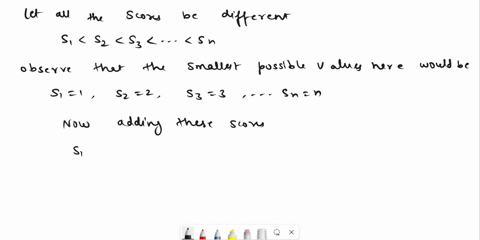 Let all the scores be different
S₁ < S₂ < S₃ < ... < Sn
observe that the smallest possible values here would be
S₁ = 1, S₂ = 2, S₃ = 3, .... Sn = n
Now adding these scores
S₁